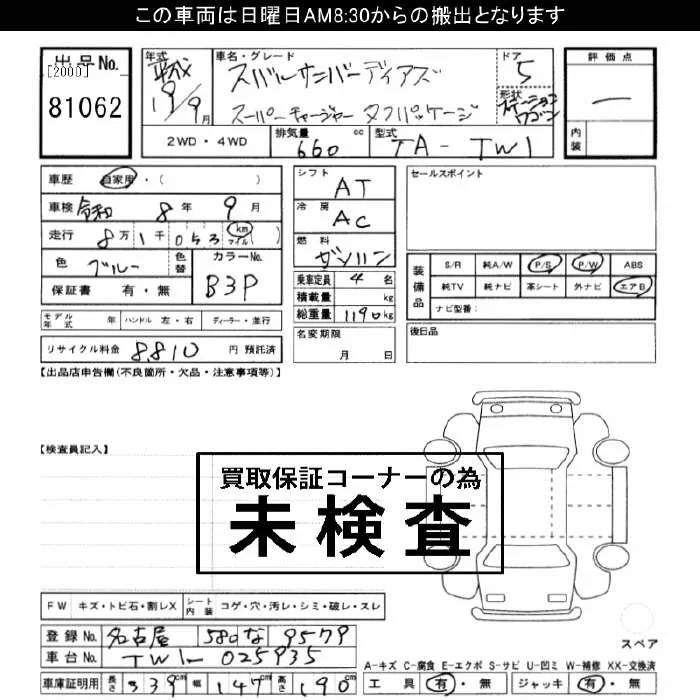 この車両は日曜日AM8:30からの搬出となります
出品No.
[2000]
81062
年式
平成
19/9月
車名・グレード
スバルサンバーディアス
スーパーチャージャー タフパッケージ
ドア
5
形状
ステーションワゴン
評価点
―
内装
2WD・4WD
排気量 660 cc
型式 TA-TW1
車歴 自家用・( )
車検 令和 8年 9月
走行 8万1千053 km マイル( )
色 ブルー 色替
カラーNo. B3P
保証書 有・無
モデル年式 年 ハンドル 左・右 ディーラー・並行
リサイクル料金 8,810 円 預託済
シフト AT
冷房 AC
燃料 ガソリン
乗車定員 4 名
積載量 kg
総重量 1190 kg
名変期限
月 日
セールスポイント
装備品
S/R 純A/W P/S P/W ABS
純TV 純ナビ 革シート 外ナビ エアB
ナビ型番:
後日品
【出品店申告欄(不良箇所・欠品・注意事項等)】
【検査員記入】
買取保証コーナーの為
未検査
FW キズ・トビ石・割レX シート内装 コゲ・穴・汚レ・シミ・破レ・スレ
登録No. 名古屋 580 な 9579
車台No. TW1-025935
車庫証明用 長さ 339cm 幅 147cm 高さ 190cm
スペア
A-キズ C-腐食 E-エクボ S-サビ U-凹ミ W-補修 XX-交換済
工具 有・無 ジャッキ 有・無